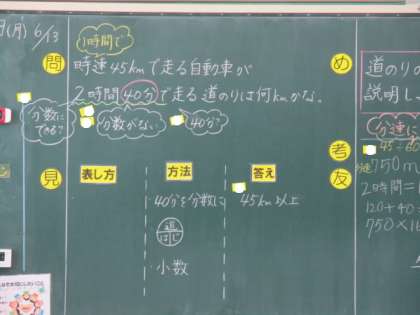 (月) 6/13
1時間で
問
時速45kmで走る自動車が
2時間40分で走る道のりは何kmかな。
分数に
できる?
分数がない
40分
見
表し方
方法
答え
40分を分数に
45km以上
道
は じ
小数
め
道のりの
説明し
考
分速
45÷60
友
分速750m
2時間=
120+40=
750×16